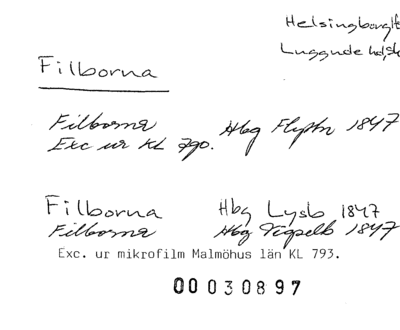 Helsingborg
Luggude hd, sk
Filborna
Filborna Hbg Flyttn 1847
Exc ur KL 790.
Filborna Hbg Lysb 1847
Filborna Hbg Vigselb 1847
Exc. ur mikrofilm Malmöhus län KL 793.
00030897